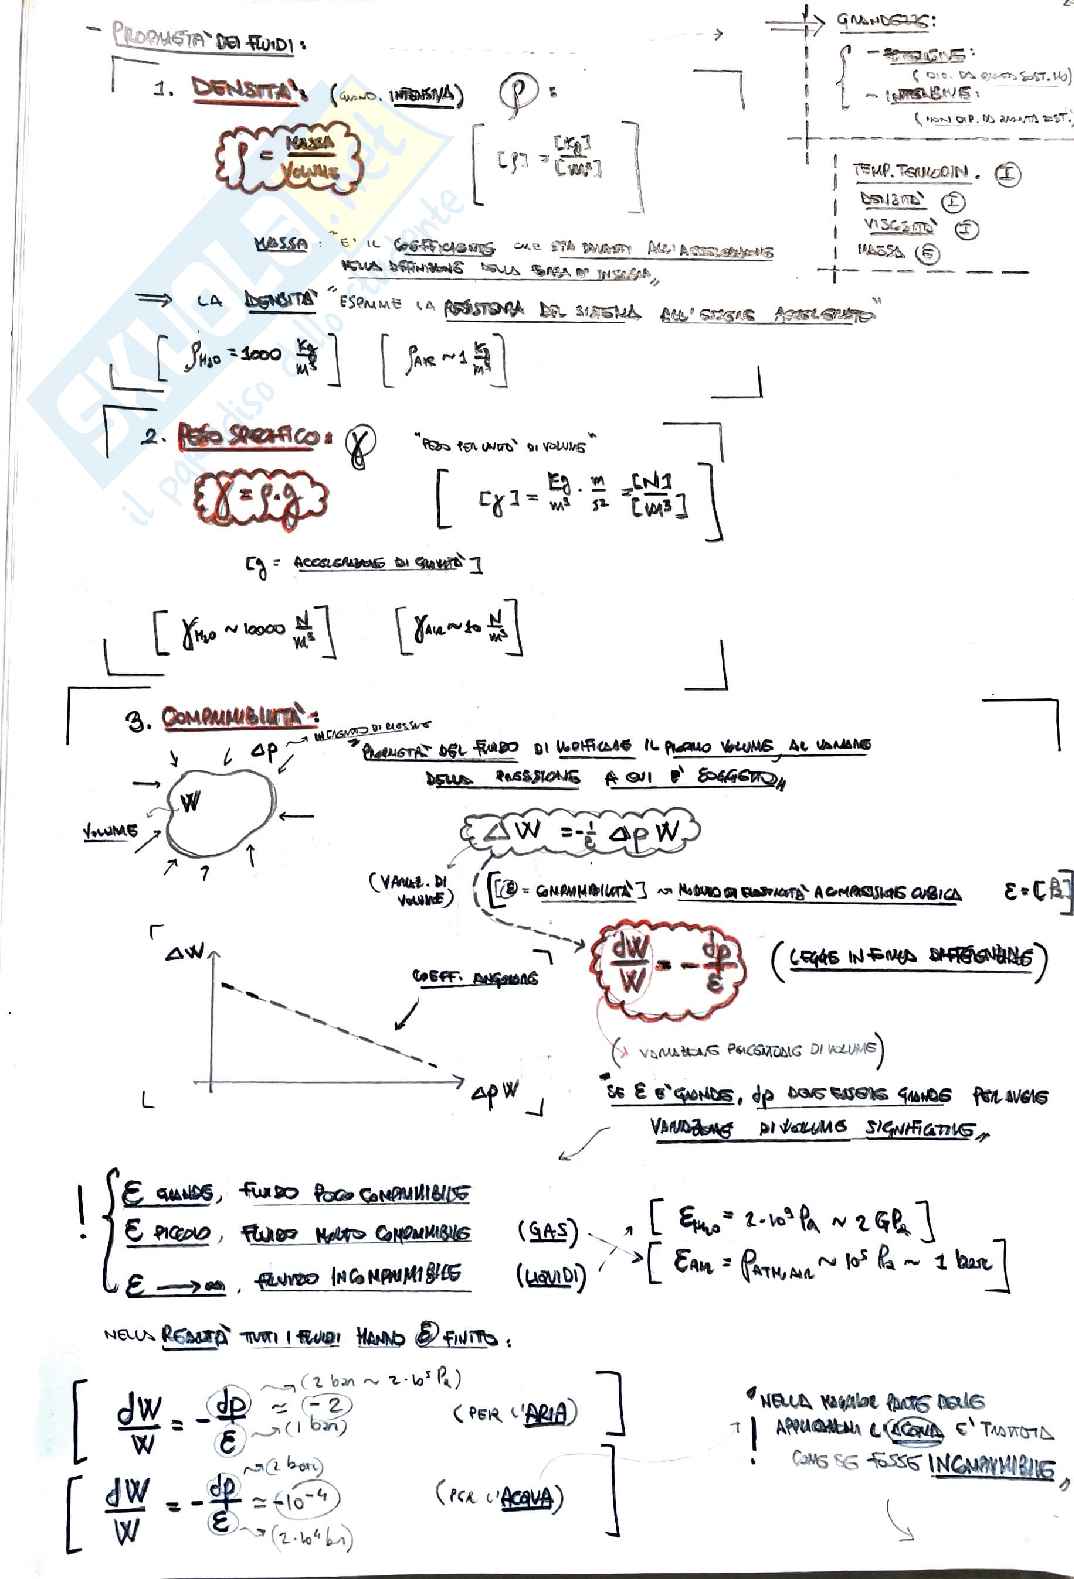 - PROPRIETA' DEI FLUIDI:
GRANDEZZE:
- ESTENSIVE:
(DIP. DA QUANTA SOST. HO)
- INTENSIVE:
(NON DIP. DA QUANTA SOST.)
1. DENSITA': (GRAND. INTENSIVA) ρ :
ρ = MASSA / VOLUME
[ρ] = [Kg] / [m³]
TEMP. TERMODIN. I
DENSITA' I
VISCOSITA' I
MASSA E
MASSA: "E' IL COEFFICIENTE CHE STA DAVANTI ALL'ACCELERAZIONE
NELLA DEFINIZIONE DELLA FORZA DI INERZIA"
⇒ LA DENSITA' "ESPRIME LA RESISTENZA DEL SISTEMA ALL'ESSERE ACCELERATO"
[ρH₂O = 1000 Kg/m³] [ρAIR ~ 1 Kg/m³]
2. PESO SPECIFICO: γ "PESO PER UNITA' DI VOLUME"
γ = ρ·g
[γ] = Kg/m³ · m/s² = [N]/[m³]
[g = ACCELERAZIONE DI GRAVITA']
[γH₂O ~ 10000 N/m³] [γAIR ~ 10 N/m³]
3. COMPRIMIBILITA':
Δp
"PROPRIETA' DEL FLUIDO DI MODIFICARE IL PROPRIO VOLUME, AL VARIARE
DELLA PRESSIONE A CUI E' SOGGETTO"
W
VOLUME
ΔW = -1/ε Δp W
(VARIAZ. DI
VOLUME)
[ε = COMPRIMIBILITA'] ~ MODULO DI ELASTICITA' A COMPRESSIONE CUBICA ε = [Pa]
dW/W = - dp/ε (LEGGE IN FORMA DIFFERENZIALE)
ΔW
COEFF. ANGOLARE
ΔpW
(VARIAZIONE PERCENTUALE DI VOLUME)
"SE ε E' GRANDE, dp DEVE ESSERE GRANDE PER AVERE
VARIAZIONE DI VOLUME SIGNIFICATIVE"
! ε GRANDE, FLUIDO POCO COMPRIMIBILE
ε PICCOLO, FLUIDO MOLTO COMPRIMIBILE (GAS)
ε → ∞, FLUIDO INCOMPRIMIBILE (LIQUIDI)
[εH₂O = 2·10⁹ Pa ~ 2 GPa]
[εAIR = pATM,AIR ~ 10⁵ Pa ~ 1 bar]
NELLA REALTA' TUTTI I FLUIDI HANNO ε FINITO:
(2 bar ~ 2·10⁵ Pa)
dW/W = - dp/ε ≃ -2 (PER L'ARIA)
(1 bar)
(2 bar)
dW/W = - dp/ε ≃ -10⁻⁴ (PER L'ACQUA)
(2·10⁴ bar)
"NELLA MAGGIOR PARTE DELLE
! APPLICAZIONI L'ACQUA E' TRATTATA
COME SE FOSSE INCOMPRIMIBILE"
SKUOLA.net
il paradiso dello studente